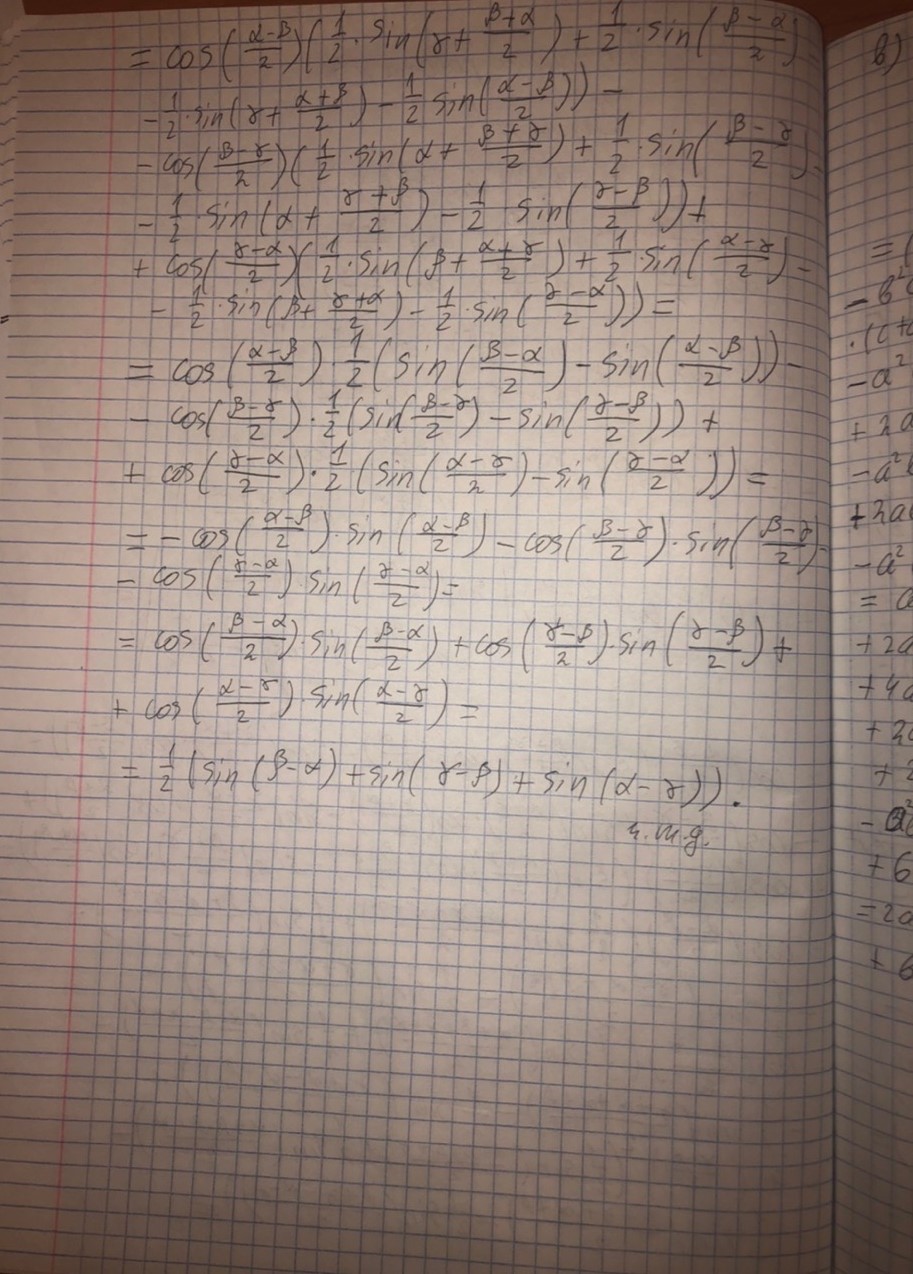 = cos(α-β/2)(1/2 · sin(γ + β+α/2) + 1/2 · sin(β-α/2)
- 1/2 · sin(γ + α+β/2) - 1/2 sin(α-β/2)) -
- cos(β-γ/2)(1/2 · sin(α + β+γ/2) + 1/2 · sin(β-γ/2) -
- 1/2 · sin(α + γ+β/2) - 1/2 sin(γ-β/2)) +
+ cos(γ-α/2)(1/2 · sin(β + α+γ/2) + 1/2 · sin(α-γ/2) -
- 1/2 · sin(β + γ+α/2) - 1/2 · sin(γ-α/2)) =
= cos(α-β/2) · 1/2 (sin(β-α/2) - sin(α-β/2)) -
- cos(β-γ/2) · 1/2 (sin(β-γ/2) - sin(γ-β/2)) +
+ cos(γ-α/2) · 1/2 (sin(α-γ/2) - sin(γ-α/2)) =
= - cos(α-β/2) · sin(α-β/2) - cos(β-γ/2) · sin(β-γ/2) -
- cos(γ-α/2) · sin(γ-α/2) =
= cos(β-α/2) · sin(β-α/2) + cos(γ-β/2) · sin(γ-β/2) +
+ cos(α-γ/2) · sin(α-γ/2) =
= 1/2 (sin(β-α) + sin(γ-β) + sin(α-γ)).
ч.т.д.
в)
= (
- b²
· (c+
- a²
+ 2a
- a²
+ 2a
- a²
= a
+ 2a
+ 4a
+ 2
+ 2
- a²
+ 6
= 2a
+ 6